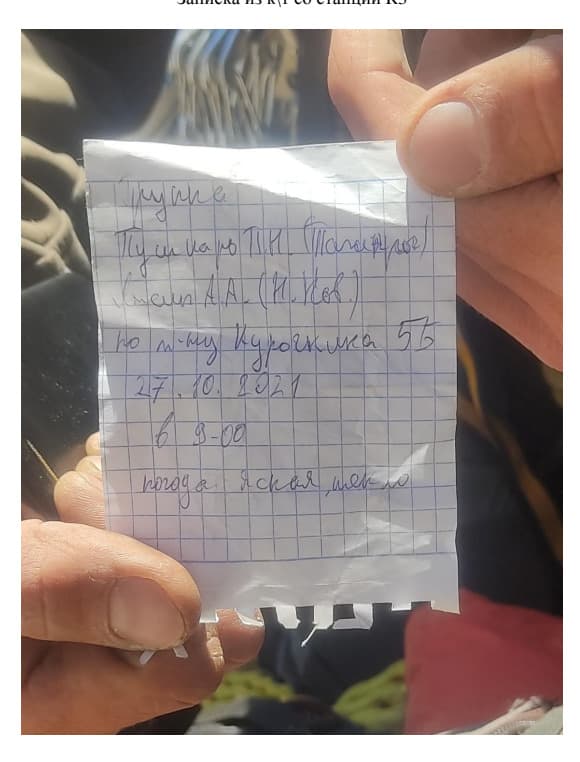 Записка из к\т со станции R5
Группа
Пушкарь П.Н. (Таганрог)
А.А. (Н.Нов.)
по м-ту Курочкина 5Б
27.10.2021
в 9-00
погода яская, тепло